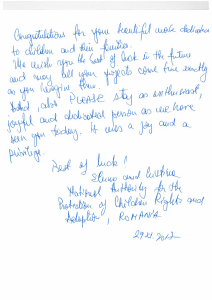 Congratulations for your beautiful work dedication
to children and their families.
We wish you the best of luck in the future
and may all your projects come true exactly
as you imagine them.
also Please stay as enthusiast,
joyful and dedicated person as we have
seen you today. It was a joy and a
privilege.
Best of luck!
and
National Authority for the
Protection of Children Rights and
Adoption, ROMANIA